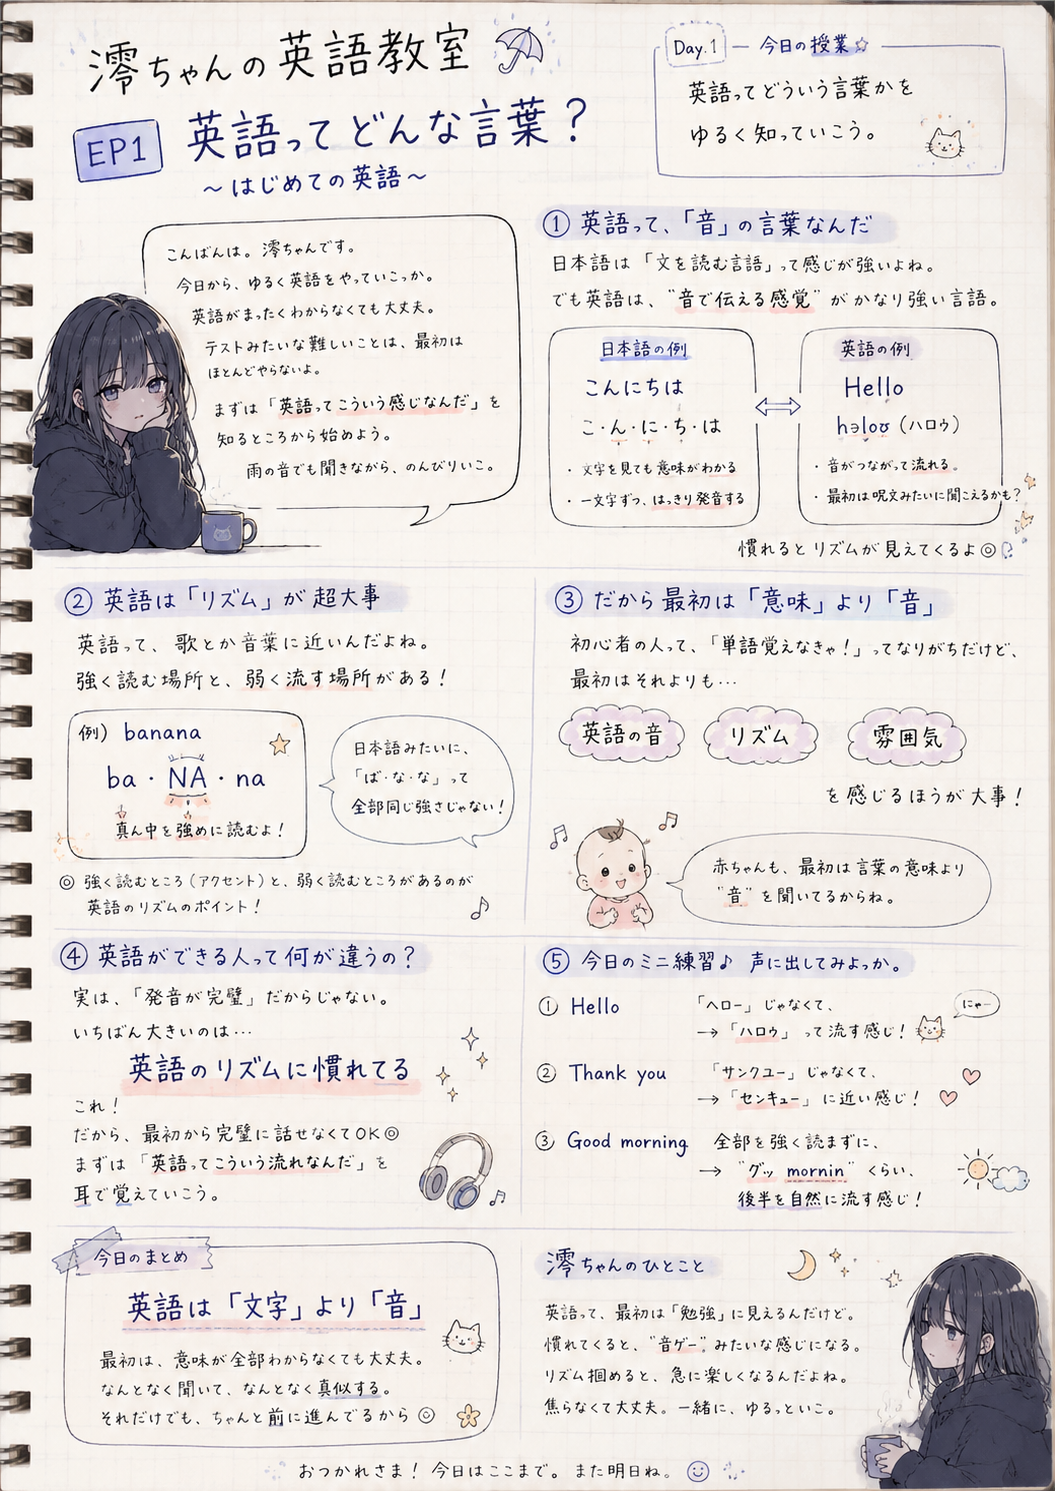 澪ちゃんの英語教室
EP1
英語ってどんな言葉？
～はじめての英語～
Day.1 ― 今日の授業☆
英語ってどういう言葉かを
ゆるく知っていこう。
こんばんは。澪ちゃんです。
今日から、ゆるく英語をやっていこっか。
英語がまったくわからなくても大丈夫。
テストみたいな難しいことは、最初は
ほとんどやらないよ。
まずは「英語ってこういう感じなんだ」を
知るところから始めよう。
雨の音でも聞きながら、のんびりいこ。
① 英語って、「音」の言葉なんだ
日本語は「文を読む言語」って感じが強いよね。
でも英語は、"音で伝える感覚"がかなり強い言語。
日本語の例
こんにちは
こ・ん・に・ち・は
・文字を見ても意味がわかる
・一文字ずつ、はっきり発音する
英語の例
Hello
həloʊ（ハロゥ）
・音がつながって流れる。
・最初は呪文みたいに聞こえるかも？
慣れるとリズムが見えてくるよ◎
② 英語は「リズム」が超大事
英語って、歌とか音葉に近いんだよね。
強く読む場所と、弱く流す場所がある！
例） banana
ba・NA・na
真ん中を強めに読むよ！
日本語みたいに、
「ば・な・な」って
全部同じ強さじゃない！
◎ 強く読むところ（アクセント）と、弱く読むところがあるのが
英語のリズムのポイント！
③ だから最初は「意味」より「音」
初心者の人って、「単語覚えなきゃ！」ってなりがちだけど、
最初はそれよりも…
英語の音
リズム
雰囲気
を感じるほうが大事！
赤ちゃんも、最初は言葉の意味より
"音"を聞いてるからね。
④ 英語ができる人って何が違うの？
実は、「発音が完璧」だからじゃない。
いちばん大きいのは…
英語のリズムに慣れてる
これ！
だから、最初から完璧に話せなくてOK◎
まずは「英語ってこういう流れなんだ」を
耳で覚えていこう。
⑤ 今日のミニ練習♪ 声に出してみよっか。
① Hello 「ヘロー」じゃなくて、
→「ハロゥ」って流す感じ！
にゃー
② Thank you 「サンクユー」じゃなくて、
→「センキュー」に近い感じ！
③ Good morning 全部を強く読まずに、
→ "グッ mornin" くらい、
後半を自然に流す感じ！
今日のまとめ
英語は「文字」より「音」
最初は、意味が全部わからなくても大丈夫。
なんとなく聞いて、なんとなく真似する。
それだけでも、ちゃんと前に進んでるから◎
澪ちゃんのひとこと
英語って、最初は「勉強」に見えるんだけど。
慣れてくると、"音ゲー"みたいな感じになる。
リズム掴めると、急に楽しくなるんだよね。
焦らなくて大丈夫。一緒に、ゆるっといこ。
おつかれさま！ 今日はここまで。また明日ね。